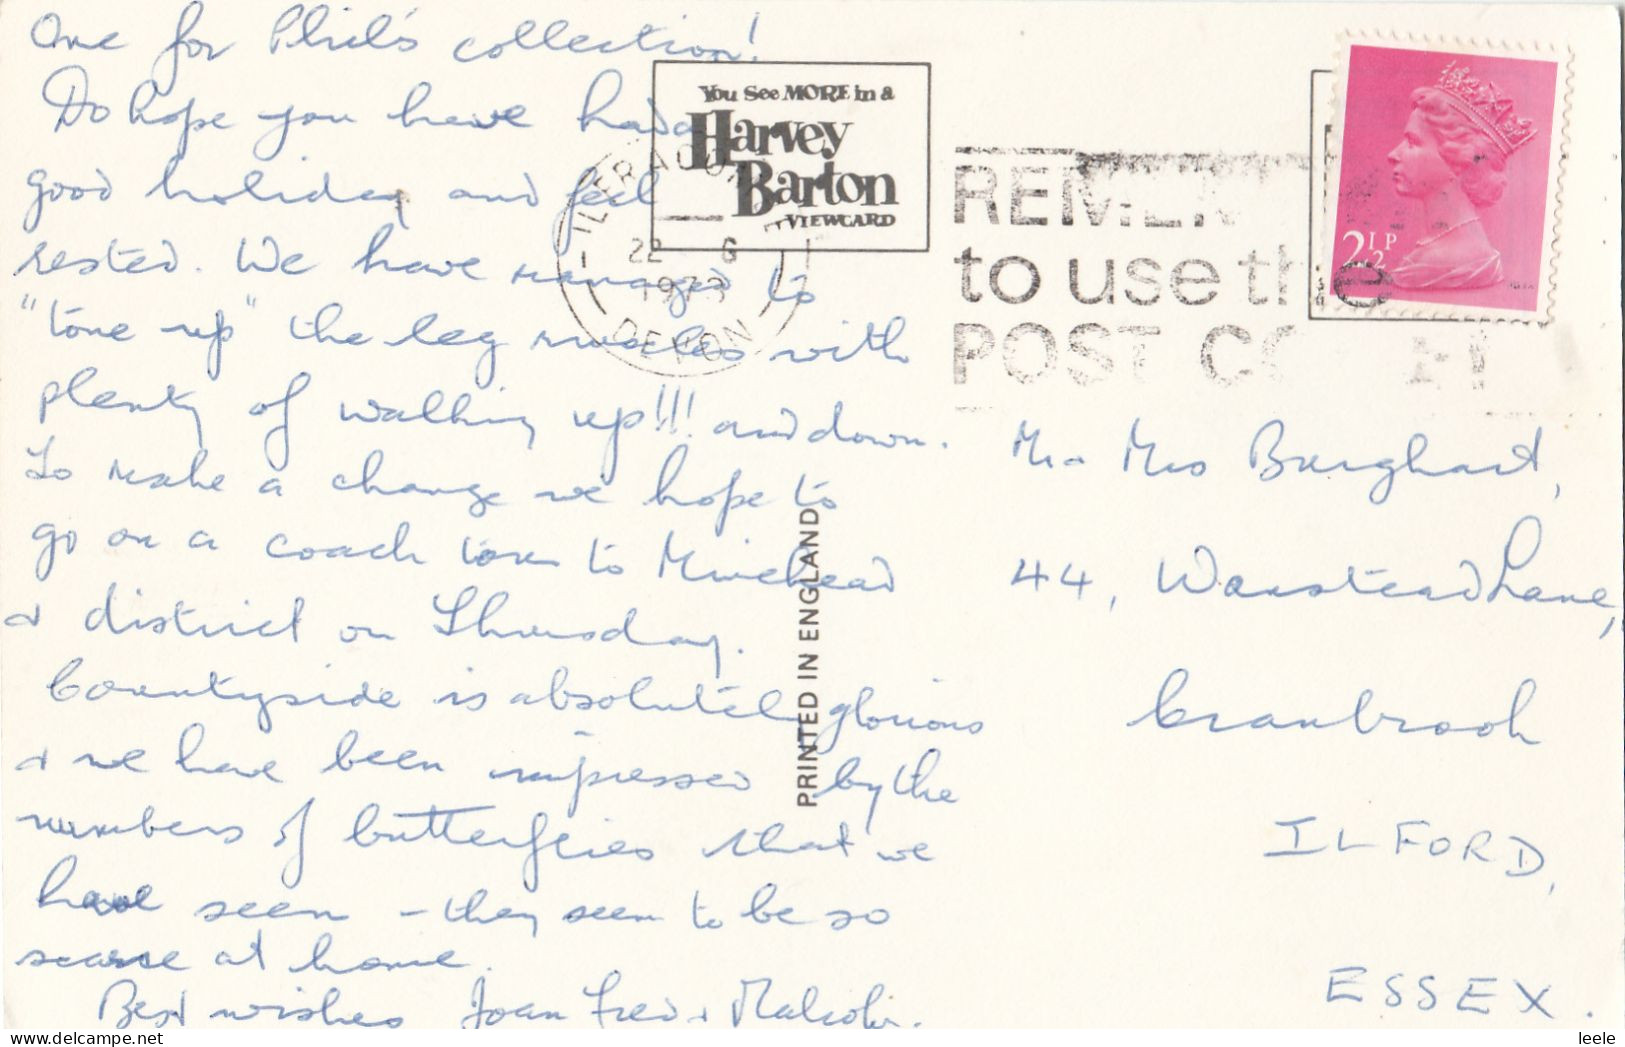 One for Phil's collection!
Do hope you have had a
good holiday and feel
rested. We have managed to
"tone up" the leg muscles with
plenty of walking up!!! and down.
To make a change we hope to
go on a coach tour to Minehead
& district on Thursday.
Countryside is absolutely glorious
& we have been impressed by the
numbers of butterflies that we
have seen - they seem to be so
scarce at home.
Best wishes Joan Fred & Malcolm.
You See MORE in a
Harvey
Barton
VIEWCARD
ILFRACOMBE
22 6
1973
DEVON
REMEMBER
to use the
POST CODE
2½P
PRINTED IN ENGLAND
Mr Mrs Burghart,
44, Wanstead Lane,
Cranbrook
ILFORD,
ESSEX.
leele